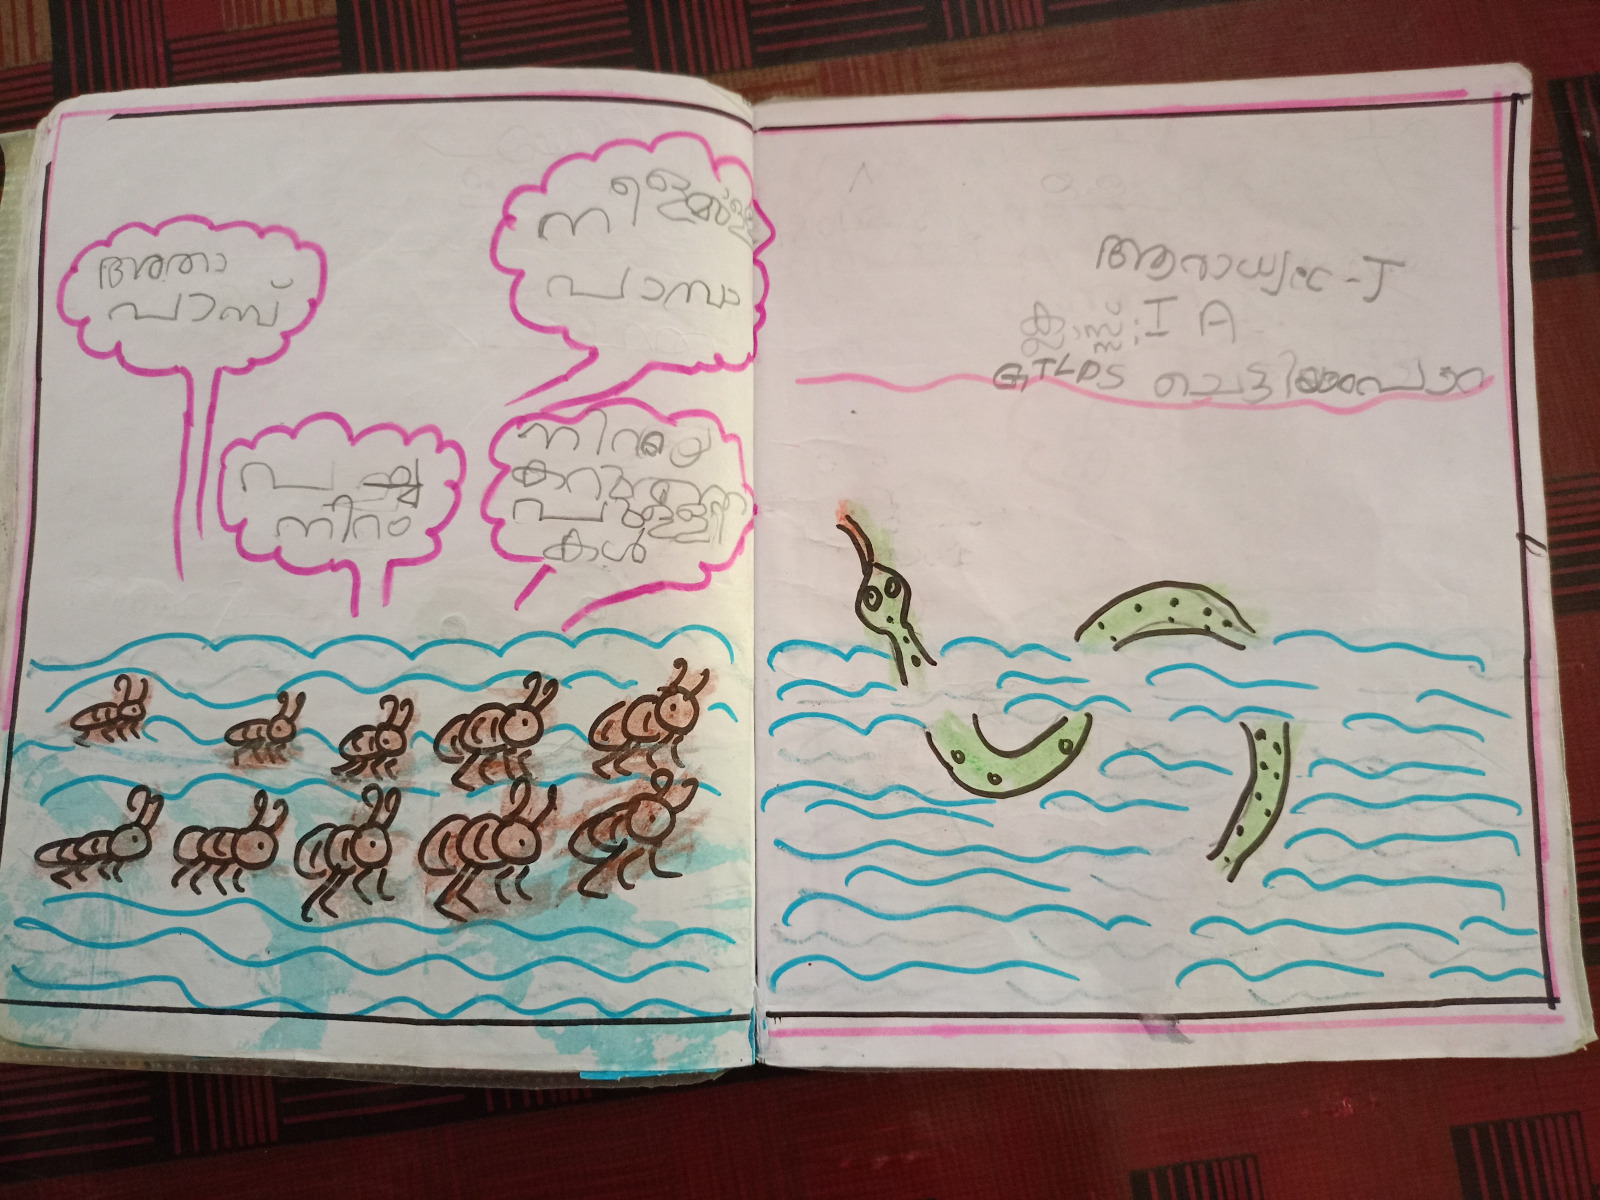 അതാ
പാമ്പ്
നീളമുള്ള
പാമ്പാ
പച്ച
നിറം
നിറയെ
കറുത്ത
പുള്ളി
കൾ
ആരാധ്യ -J
ക്ലാസ്സ്: I A
GTLPS